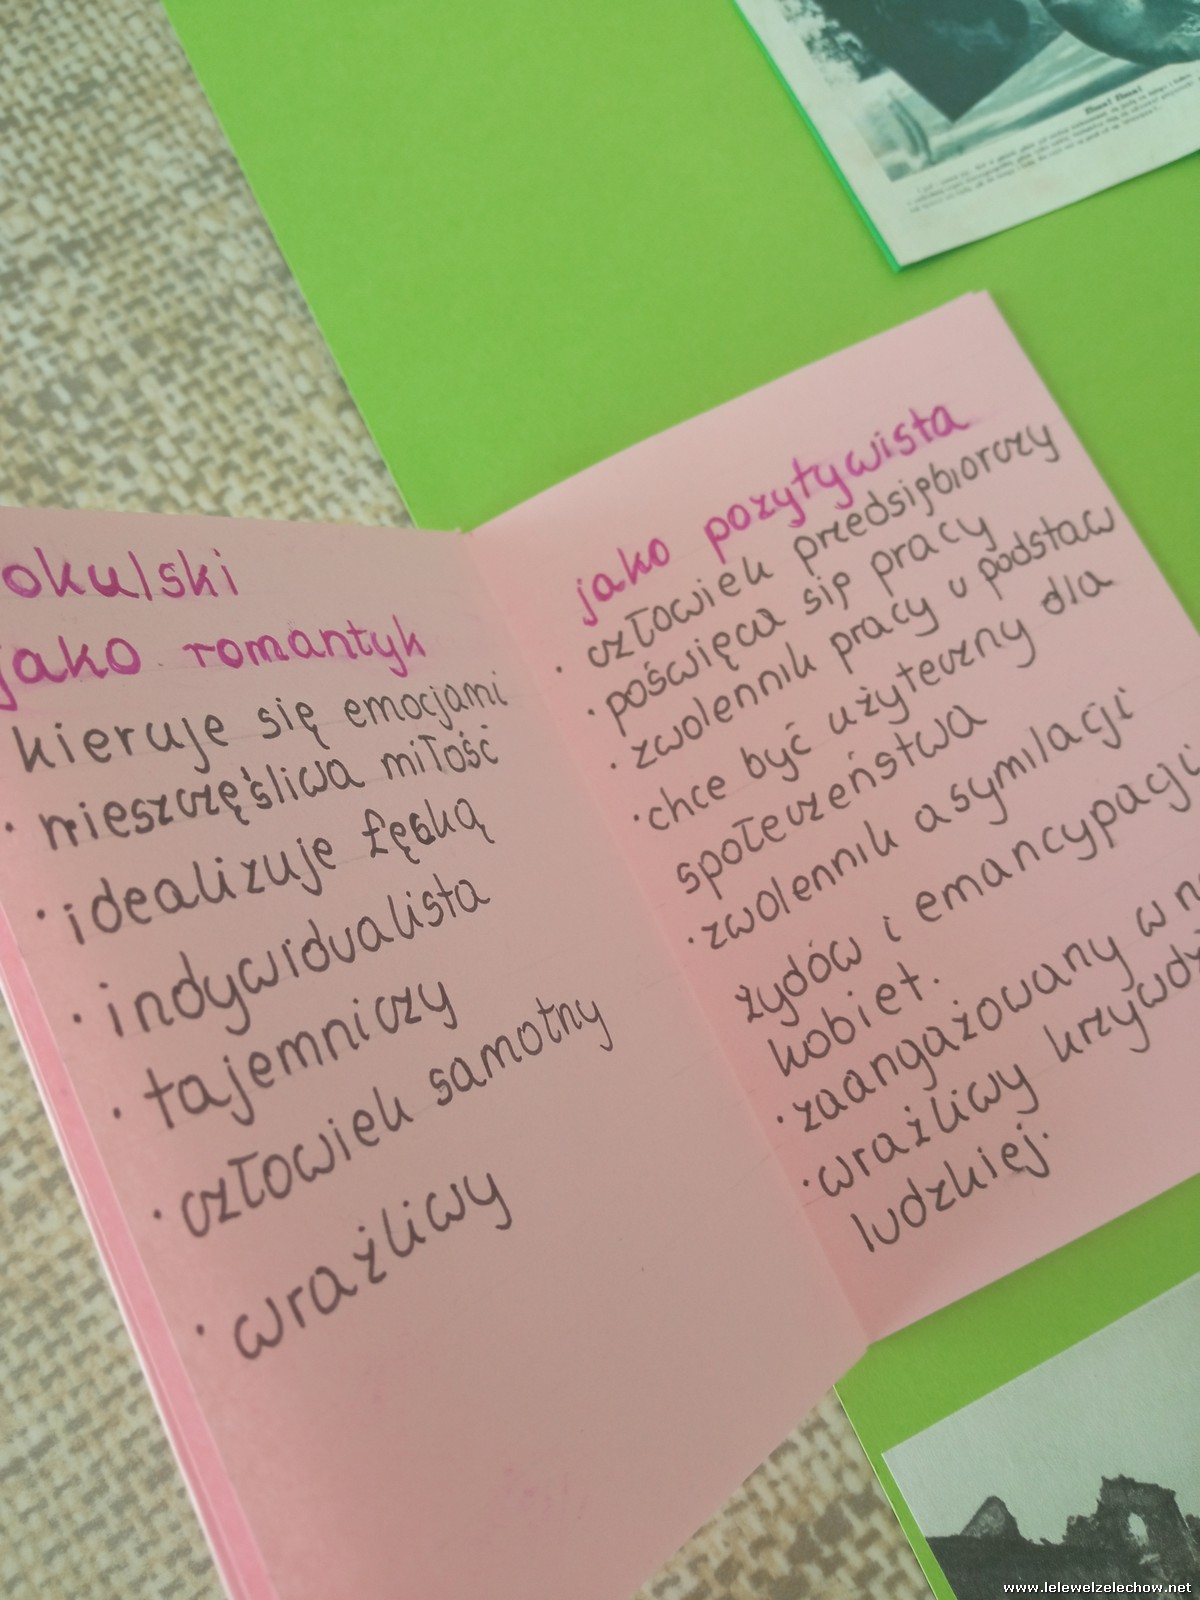 okulski
jako romantyk
kieruje się emocjami
• nieszczęśliwa miłość
• idealizuje Łęcką
• indywidualista
• tajemniczy
• człowiek samotny
• wrażliwy
jako pozytywista
• człowiek przedsiębiorczy
• poświęca się pracy
• zwolennik pracy u podstaw
• chce być użyteczny dla
społeczeństwa
• zwolennik asymilacji
żydów i emancypacji
kobiet.
• zaangażowany w
• wrażliwy
ludzkiej.
www.lelewelzelechow.net